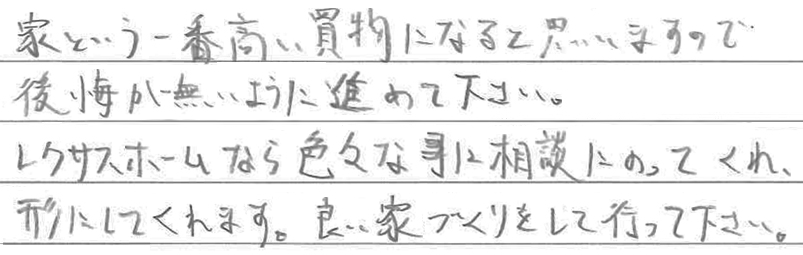 家という一番高い買物になると思いますので
後悔が無いように進めて下さい。
レクサスホームなら色々な事に相談にのってくれ、
形にしてくれます。良い家づくりをして行って下さい。